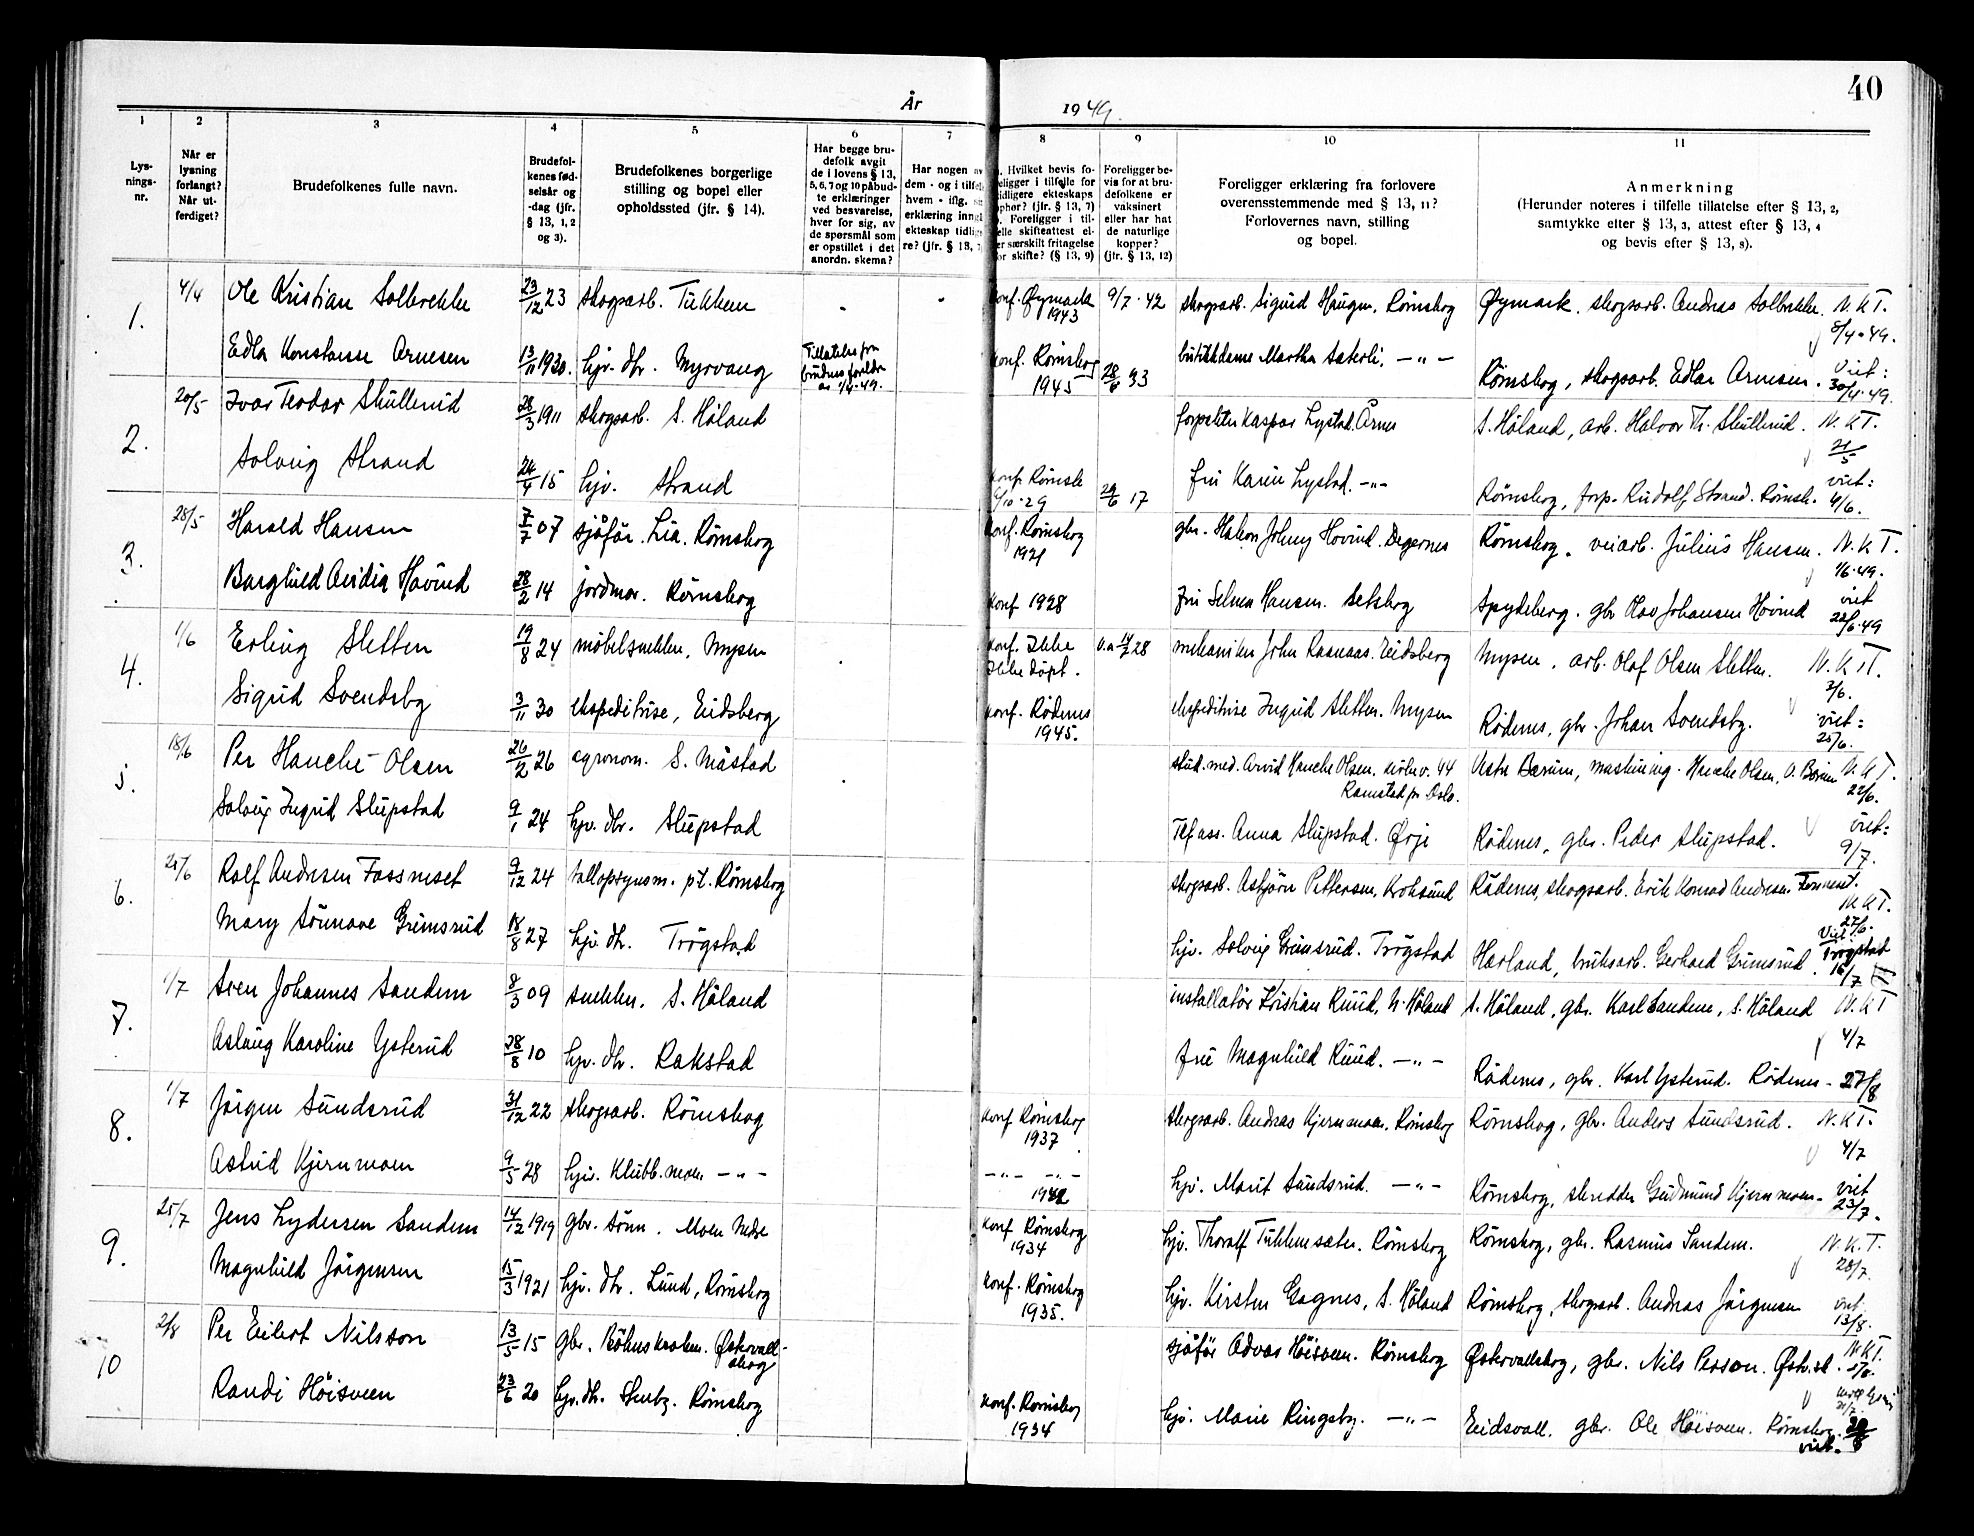 År
1949.
40
1
2
3
4
5
6
7
8
9
10
11
Lys-
nings-
nr.
Når er
lysning
forlangt?
Når ut-
ferdiget?
Brudefolkenes fulle navn.
Brudefol-
kenes fød-
selsår og
-dag (jfr.
§ 13, 1, 2
og 3).
Brudefolkenes borgerlige
stilling og bopel eller
opholdssted (jfr. § 14).
Har begge bru-
defolk avgit
de i lovens § 13,
5, 6, 7 og 10 påbud-
te erklæringer
ved besvarelse,
hver for sig, av
de spørsmål som
er opstillet i det
anordn. skema?
Har nogen av
dem - og i tilfelle
hvem - iflg.
erklæring inng
ekteskap tidlig
re? (jfr. § 13, 7
Hvilket bevis fo-
religger i tilfelle for
tidligere ekteskaps
ophør? (jfr. § 13, 7)
Foreligger i til-
felle skifteattest el-
er særskilt fritagelse
for skifte? (§ 13, 9)
Foreligger be-
vis for at bru-
defolkene er
vaksinert
eller har hat
de naturlige
kopper?
(jfr. § 13, 12)
Foreligger erklæring fra forlovere
overensstemmende med § 13, 11?
Forlovernes navn, stilling
og bopel.
Anmerkning
(Herunder noteres i tilfelle tillatelse efter § 13, 2,
samtykke efter § 13, 3, attest efter § 13, 4
og bevis efter § 13, 8).
1. 4/4 Ole Kristian Solbrekke 23/12 23 skogsarb. Tukkun konf. Øymark 1943 9/7-42 skogsarb. Sigurd Haugen, Rømskog Øymark, skogsarb. Andreas Solbrekke. N.K.T. 8/4-49.
Edla Konstanse Arnesen 13/11 1930. hjv. dtr. Myrvang Tillatelse fra brudens foreldre av 1/4-49. konf. Rømskog 1945 28/6 33 butikkdame Martha Sæterli, -"- Rømskog, skogsarb. Edlar Arnesen. Viet: 30/4-49.
2. 20/5 Ivar Teodor Skullerud 28/3 1911 skogsarb. S. Høland forpakter Kaspar Lystad, Årnes S. Høland, arb. Halvor Th. Skullerud. N.K.T. 21/5
Solveig Strand 24/4 15 hjv. Strand konf. Rømsk 6/10-29 29/6 17 fru Karin Lystad. -"- Rømskog, forp. Rudolf Strand. Rømsk. viet: 4/6.
3. 28/5 Harald Hansen 7/7 07 sjåfør. Lia. Rømskog konf. Rømskog 1921 gbr. Håkon Johny Hovind. Degernes Rømskog, veiarb. Julius Hansen. N.K.T. 1/6-49.
Borghild Avidia Hovind 28/2 14 jordmor. Rømskog konf 1928 Fru Selma Hansen. Setskog Spydeberg. gbr Olav Johansen Hovind viet 22/6-49
4. 1/6 Erling Sletten 19/8 24 møbelsnekker, Mysen konf. Ikke Ikke døpt. v.a. 14/7 28 mekaniker John Raanaas. Eidsberg Mysen, arb. Olaf Olsen Sletten. N.K.T. 2/6.
Sigrid Svendsby 3/11 30 ekspeditrise, Eidsberg konf. Rødenes 1945. ekspeditrise Ingrid Sletten. Mysen Rødenes, gbr. Johan Svendsby. viet: 25/6.
5. 18/6 Per Hauche-Olsen 26/2 26 agronom. S. Måstad stud. med. Arvid Hauche Olsen, kirkev. 44 Ramstad pr Oslo. Vestre Bærum, maskining. Hauche Olsen, V. Bærum N.K.T. 22/6.
Solveig Ingrid Slupstad 9/1 24 hjv. dtr. Slupstad Tlf.ass. Anna Slupstad. Ørje Rødenes, gbr. Peder Slupstad. viet: 9/7.
6. 25/6 Rolf Andresen Fossneset 9/12 24 talloptynsm. p.t. Rømskog skogsarb. Asbjørn Pettersen, Kroksund Rødenes, skogsarb. Erik Konrad Andresen Fossneset. N.K.T. 27/6.
Mary Sønnøve Grimsrud 18/8 27 hjv. dtr. Trøgstad hjv. Solveig Grimsrud. Trøgstad Hærland, bruksarb. Gerhard Grimsrud. Viet: Trøgstad 16/7
7. 1/7 Sven Johannes Sandem 8/3 09 snekker. S. Høland installatør Kristian Ruud, N. Høland S. Høland, gbr. Karl Sandem, S. Høland N.K.T 4/7
Aslaug Karoline Ysterud 28/8 10 hjv. dtr. Rakstad fru Magnhild Ruud. -"- Rødenes, gbr. Karl Ysterud. Rødenes - 27/8
8. 1/7 Jørgen Sundsrud 31/12 22 skogsarb. Rømskog konf Rømskog 1937 skogsarb. Andreas Kjernmoen, Rømskog Rømskog, gbr. Anders Sundsrud. N.K.T. 4/7
Astrid Kjernmoen 9/5 28 hjv. Klubb.moen -"- -"- -"- 1942 hjv. Marit Sundsrud. -"- Rømskog, skredder Gudmund Kjernmoen - viet 23/7.
9. 25/7 Jens Lydersen Sandem 14/12 1919 gbr. sønn. Moen Nedre konf Rømskog 1934 hjv. Thoralf Tukkensæter. Rømskog Rømskog, gbr. Rasmus Sandem. N.K.T. 28/7.
Magnhild Jørgensen 15/3 1921 hjv. dtr. Lund, Rømskog konf. Rømskog 1935. hjv. Kirsten Gagnes, S. Høland Rømskog, skogsarb. Andreas Jørgensen viet 13/8.
10 2/8 Per Eilert Nilsson 13/5 15 gbr. Bøhnskroken. Østervallskog sjåfør Advar Høisveen. Rømskog Østervallskog, gbr. Nils Persson. Øst.sk. N.K.T.
Randi Høisveen 23/6 20 hjv. dtr. Stenby. Rømskog konf. Rømskog 1934 hjv. Marie Ringsby. -"- Eidsvoll. gbr. Ole Høisveen. Rømskog. 20/8 viet.